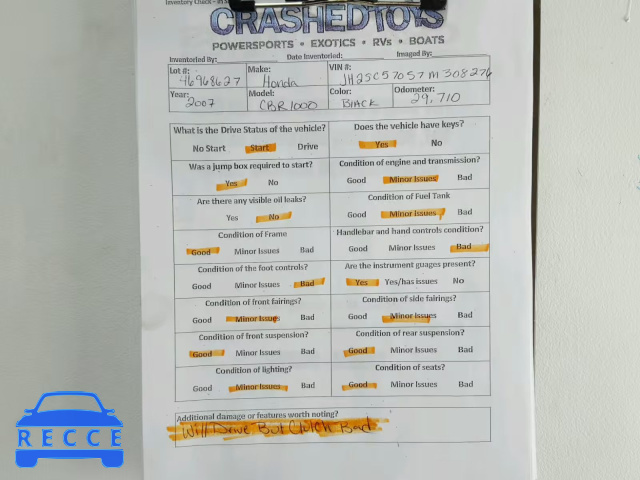 CRASHEDTOYS
POWERSPORTS • EXOTICS • RVs • BOATS
Inventoried By: Date Inventoried: Imaged By:
Lot #: Make: VIN #:
46968627 Honda JH2SC57057M308276
Year: Model: Color: Odometer:
2007 CBR1000 Black 29,710
What is the Drive Status of the vehicle? Does the vehicle have keys?
No Start Start Drive Yes No
Was a jump box required to start? Condition of engine and transmission?
Yes No Good Minor Issues Bad
Are there any visible oil leaks? Condition of Fuel Tank
Yes No Good Minor Issues Bad
Condition of Frame Handlebar and hand controls condition?
Good Minor Issues Bad Good Minor Issues Bad
Condition of the foot controls? Are the instrument guages present?
Good Minor Issues Bad Yes Yes/has issues No
Condition of front fairings? Condition of side fairings?
Good Minor Issues Bad Good Minor Issues Bad
Condition of front suspension? Condition of rear suspension?
Good Minor Issues Bad Good Minor Issues Bad
Condition of lighting? Condition of seats?
Good Minor Issues Bad Good Minor Issues Bad
Additional damage or features worth noting?
Will Drive But Clutch Bad
RECCE